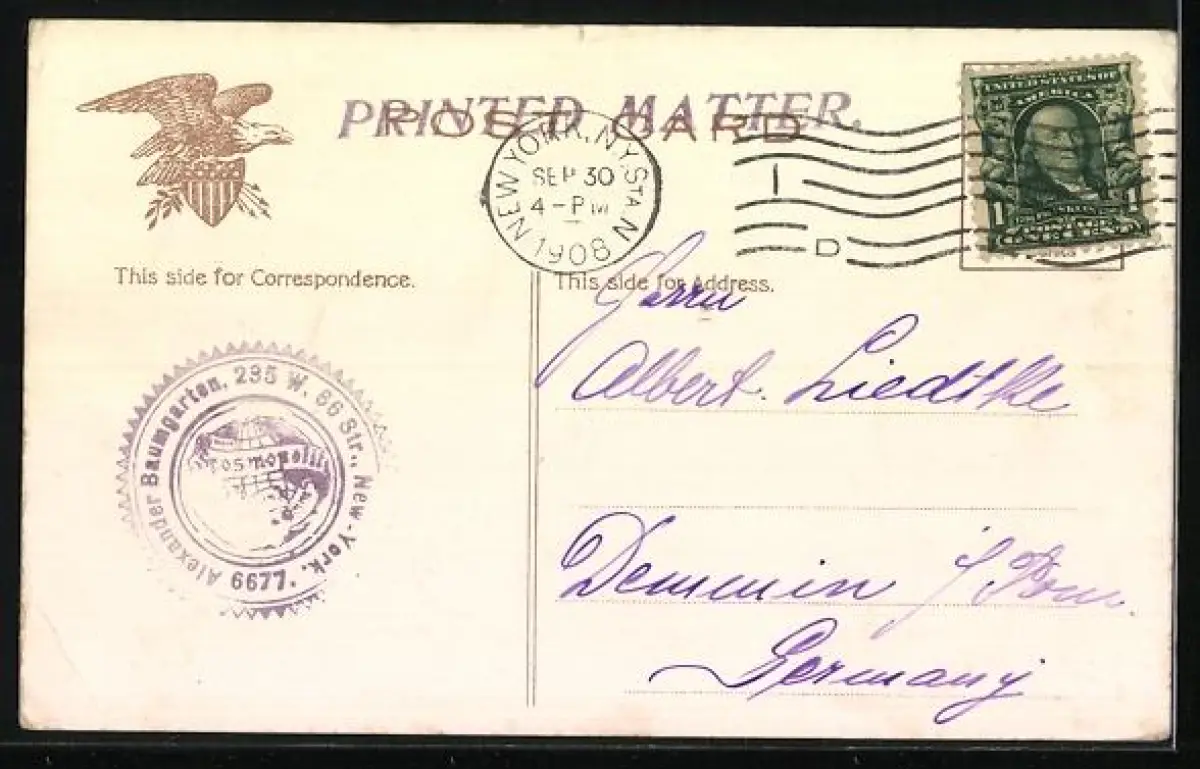 PRINTED MATTER.
POST CARD
UNITED STATES OF
AMERICA
1 1
FRANKLIN
POSTAGE
ONE CENT
NEW YORK, N.Y. STA N
SEP 30
4-PM
1908
1
D
This side for Correspondence.
This side for Address.
Herrn
Albert. Liedtke
Demmin i. Pom.
Germany
Alexander Baumgarten, 235 W. 66 Str., New-York.
6677.